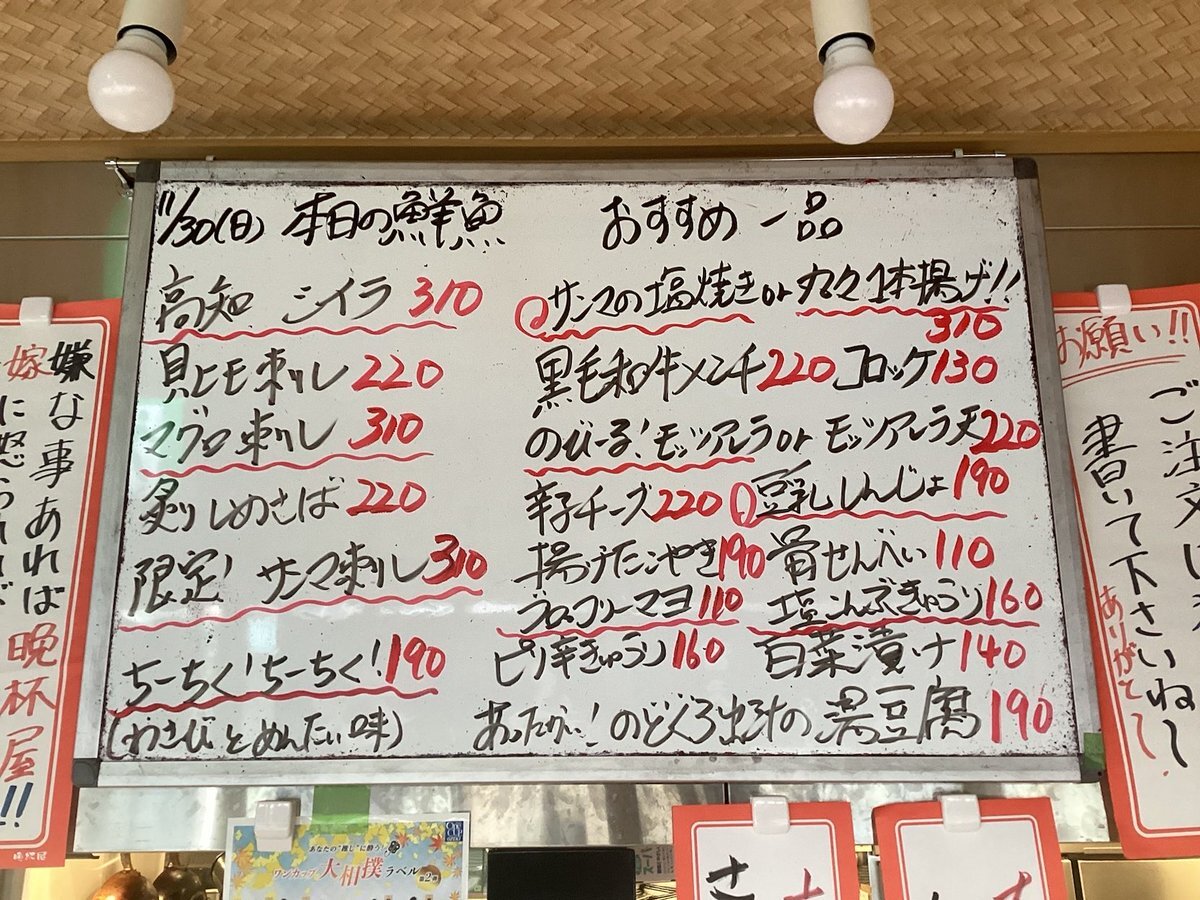 11/30(日) 本日の鮮魚
高知 シイラ 310
貝ヒモ刺し 220
マグロ刺し 310
炙りしめさば 220
限定! サンマ刺し 310
ちーちく!ちーちく! 190
(わさびとめんたい味)
おすすめ一品
サンマの塩焼きor丸々1本揚げ!!
310
黒毛和牛メンチ220 コロッケ130
のびーる!モッツアレラorモッツアレラ天220
辛子チーズ220 豆乳しんじょ190
揚げたこやき190 骨せんべい110
ブロッコリーマヨ110 塩こんぶきゅうり160
ピリ辛きゅうり160 白菜漬け140
あったかい!のどぐろ出汁の湯豆腐190
嫌な事あれば晩杯屋!!
嫁に怒られれば
お願い!!
ご注文は
書いて下さいね
ありがとう
あなたの"推し"に酔う!
ワンカップ大相撲ラベル 第2弾
ONE CUP